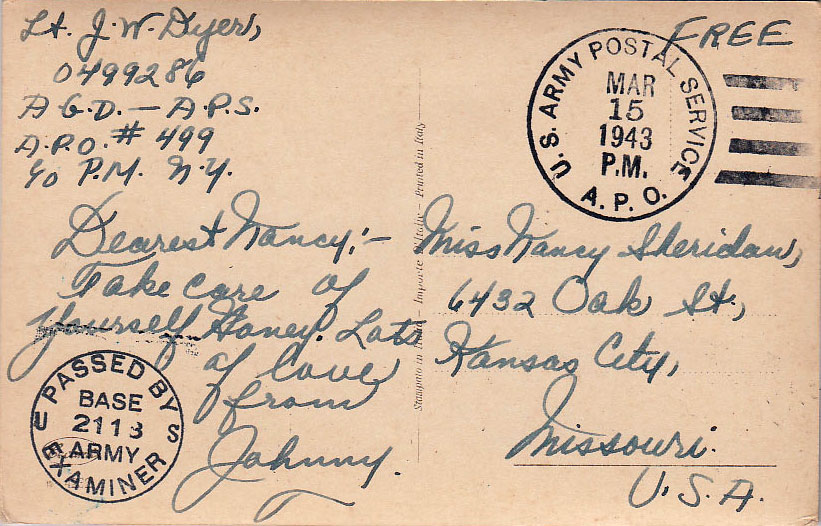 Lt. J. W. Dyer,
0499286
A G.D. — A.P.S.
A.P.O. # 499
c/o P.M. N.Y.
FREE
U.S. ARMY POSTAL SERVICE
MAR
15
1943
P.M.
A.P.O.
Dearest Nancy:—
Take care of
yourself Honey. Lots
of love
from
Johnny.
Miss Nancy Sheridan,
6432 Oak St.,
Kansas City,
Missouri.
U.S.A.
PASSED BY
BASE
U 2113 S
ARMY
EXAMINER
Stampato in Italia — Imparte d'Italie — Printed in Italy